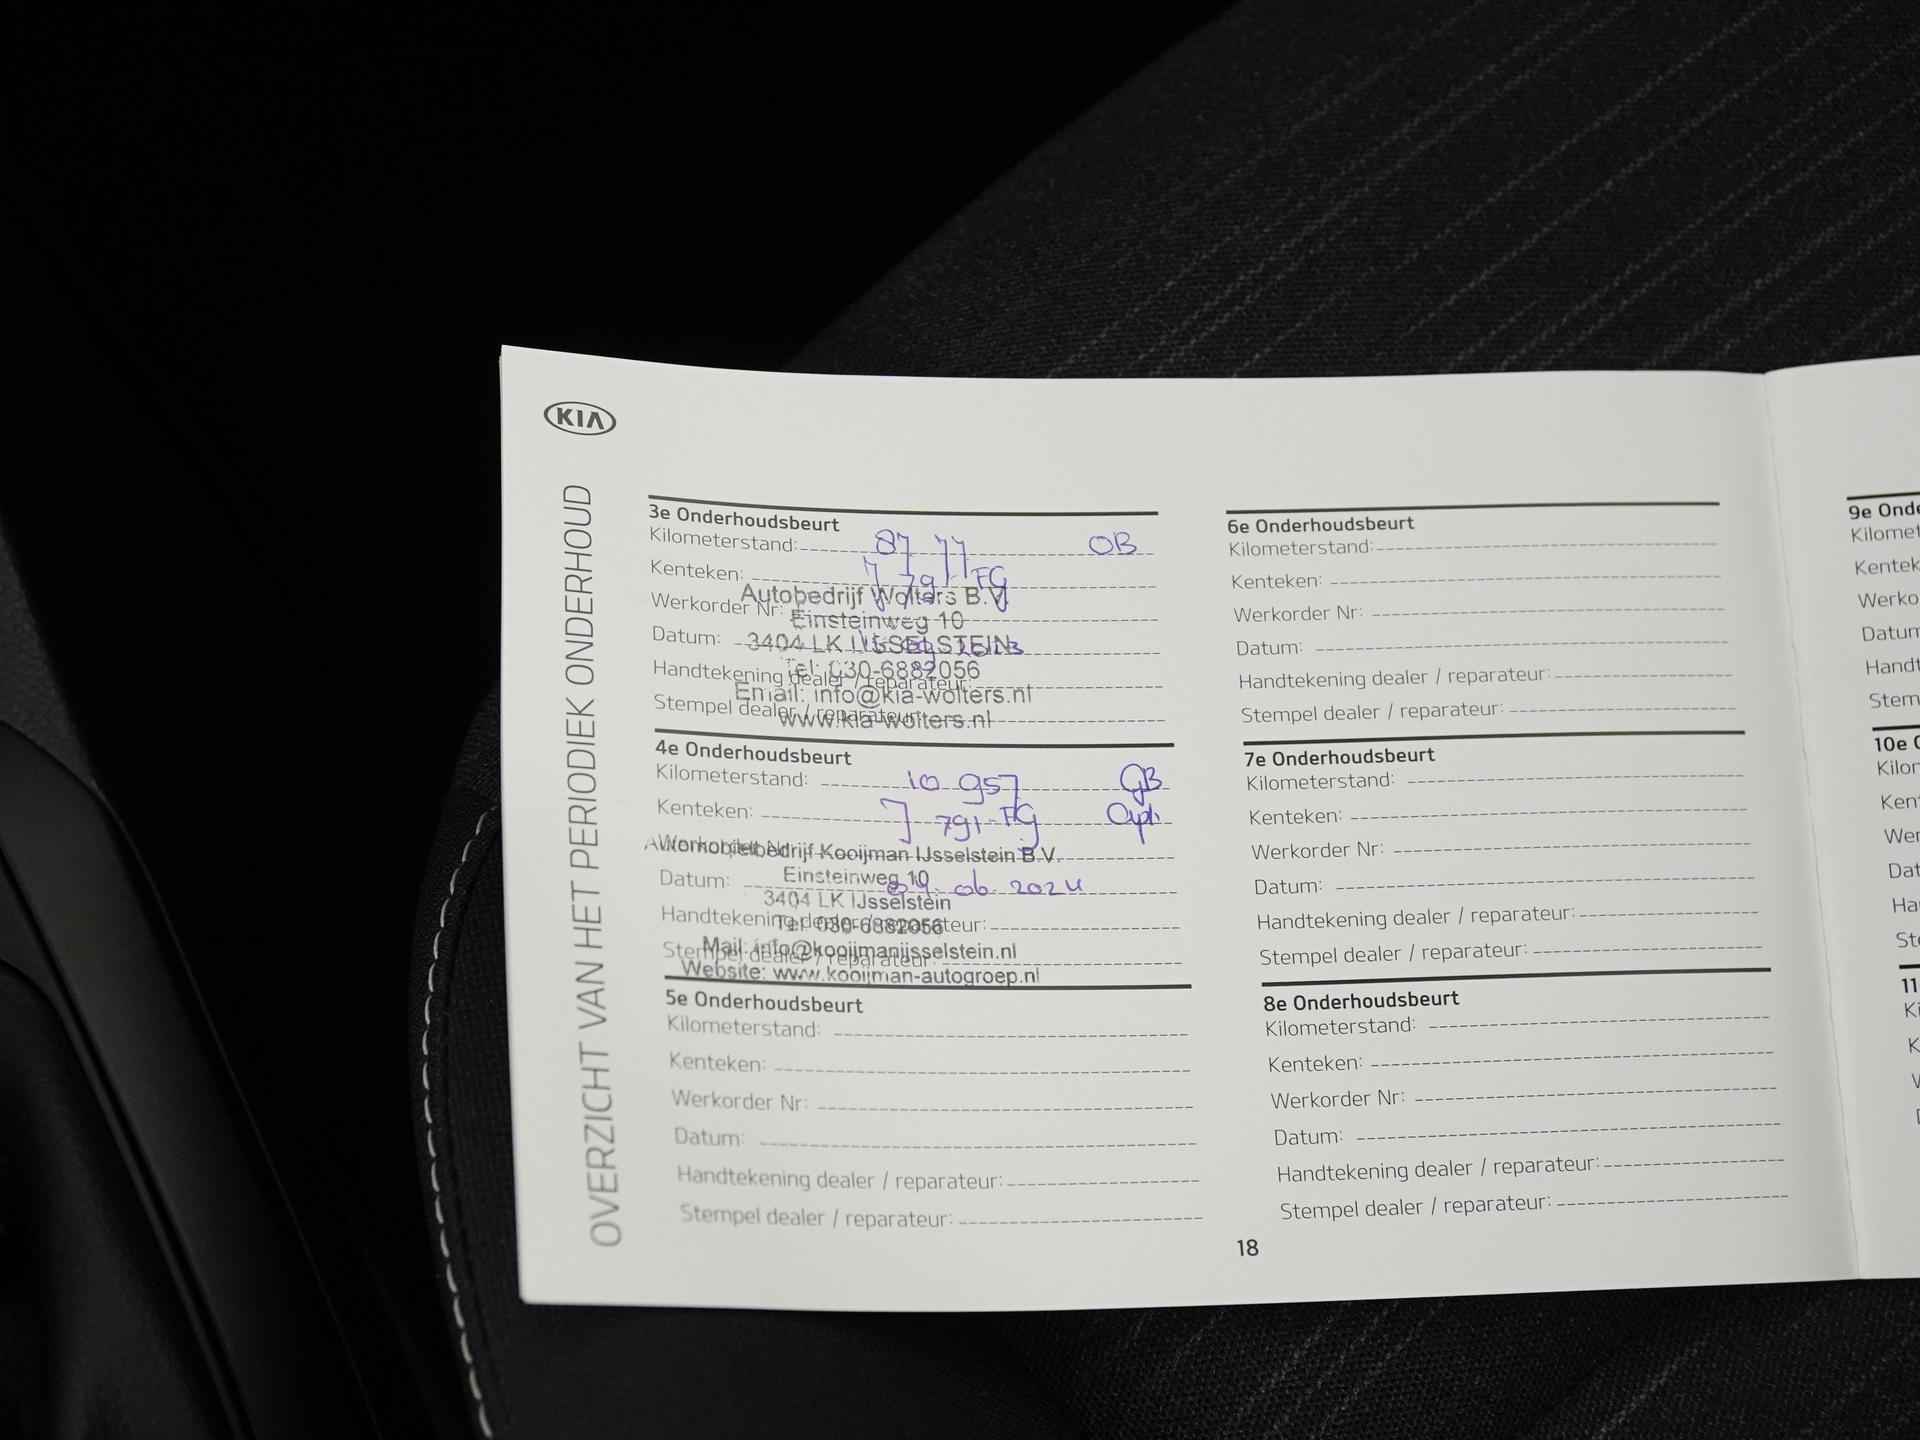 KIA
OVERZICHT VAN HET PERIODIEK ONDERHOUD
3e Onderhoudsbeurt
Kilometerstand: 87 77 OB
Kenteken: 791-FG
Autobedrijf Wolters B.V.
Werkorder Nr:
Einsteinweg 10
Datum:
3404 LK IJSSELSTEIN
Tel: 030-6882056
Handtekening dealer / reparateur:
Email: info@kia-wolters.nl
Stempel dealer / reparateur:
www.kia-wolters.nl
4e Onderhoudsbeurt
Kilometerstand: 10 957 GB
Kenteken: J 791-FG
Werkorder Nr:
Automobielbedrijf Kooijman IJsselstein B.V.
Einsteinweg 10
Datum: 06 2024
3404 LK IJsselstein
Handtekening dealer / reparateur:
Tel: 030-6882056
Mail: info@kooijmanijsselstein.nl
Stempel dealer / reparateur:
Website: www.kooijman-autogroep.nl
5e Onderhoudsbeurt
Kilometerstand:
Kenteken:
Werkorder Nr:
Datum:
Handtekening dealer / reparateur:
Stempel dealer / reparateur:
6e Onderhoudsbeurt
Kilometerstand:
Kenteken:
Werkorder Nr:
Datum:
Handtekening dealer / reparateur:
Stempel dealer / reparateur:
7e Onderhoudsbeurt
Kilometerstand:
Kenteken:
Werkorder Nr:
Datum:
Handtekening dealer / reparateur:
Stempel dealer / reparateur:
8e Onderhoudsbeurt
Kilometerstand:
Kenteken:
Werkorder Nr:
Datum:
Handtekening dealer / reparateur:
Stempel dealer / reparateur:
18
9e Onde
Kilomet
Kentek
Werko
Datum
Handt
Stem
10e O
Kilon
Ken
Wer
Dat
Ha
Ste
11
Ki
K